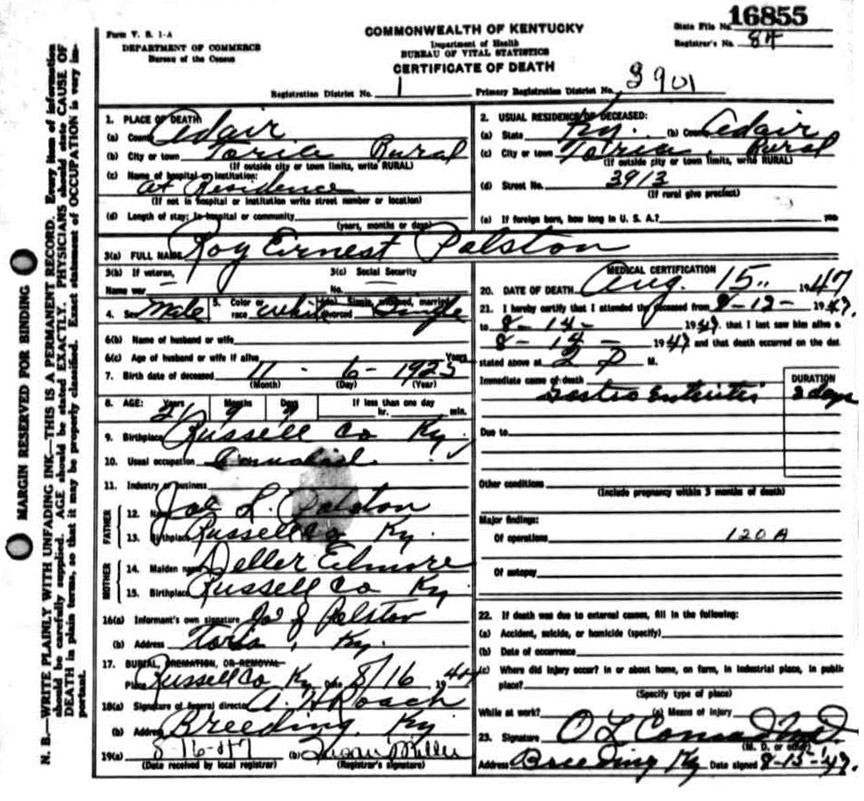 16855
Form V. S. 1-A
DEPARTMENT OF COMMERCE
Bureau of the Census
COMMONWEALTH OF KENTUCKY
Department of Health
BUREAU OF VITAL STATISTICS
CERTIFICATE OF DEATH
State File No.
Registrar's No. 84
Registration District No. 1 Primary Registration District No. 3901
1. PLACE OF DEATH:
(a) County Adair
(b) City or town Rural
(If outside city or town limits, write RURAL)
(c) Name of hospital or institution:
at Residence
(If not in hospital or institution write street number or location)
(d) Length of stay: In hospital or community
(years, months or days)
2. USUAL RESIDENCE OF DECEASED:
(a) State Ky. (b) County Adair
(c) City or town Rural
(If outside city or town limits, write RURAL)
(d) Street No. 3913
(If rural give precinct)
(e) If foreign born, how long in U. S. A.? yes
3(a) FULL NAME Roy Ernest Polston
3(b) If veteran,
Name war —
3(c) Social Security
No. —
4. Sex Male 5. Color or race White Single, widowed, married, divorced Single
6(b) Name of husband or wife
6(c) Age of husband or wife if alive Years
7. Birth date of deceased 11 - 6 - 1925
(Month) (Day) (Year)
8. AGE: Years Months Days If less than one day
21 9 9 hr. min.
9. Birthplace Russell Co Ky.
10. Usual occupation
11. Industry or business
FATHER
12. Name Joe L. Polston
13. Birthplace Russell Co Ky.
MOTHER
14. Maiden name Deller Elmore
15. Birthplace Russell Co Ky.
16(a) Informant's own signature Polston
(b) Address Ky.
17. BURIAL, CREMATION, OR REMOVAL
Place Russell Co Ky Date 8/16 1947
18(a) Signature of funeral director A. H Roach
(b) Address Breeding, Ky
19(a) 8-16-47 (b) Susan Miller
(Date received by local registrar) (Registrar's signature)
MEDICAL CERTIFICATION
20. DATE OF DEATH Aug. 15, 1947
21. I hereby certify that I attended the deceased from 8-12- 1947.
to 8-14- 1947. that I last saw him alive o
8-14- 1947 and that death occurred on the dat
stated above at 2 P M.
Immediate cause of death DURATION
Gastro Enteritis 3 days
Due to
Other conditions
(Include pregnancy within 3 months of death)
Major findings:
Of operations 120A
Of autopsy
22. If death was due to external causes, fill in the following:
(a) Accident, suicide, or homicide (specify)
(b) Date of occurrence
(c) Where did injury occur? In or about home, on farm, in industrial place, in public
place?
(Specify type of place)
While at work? (e) Means of injury
23. Signature O L Conrad M.D.
(M. D. or other)
Address Breeding Ky Date signed 8-15-47.
MARGIN RESERVED FOR BINDING
N. B.—WRITE PLAINLY WITH UNFADING INK—THIS IS A PERMANENT RECORD. Every item of information
should be carefully supplied. AGE should be stated EXACTLY. PHYSICIANS should state CAUSE OF
DEATH in plain terms, so that it may be properly classified. Exact statement of OCCUPATION is very im-
portant.